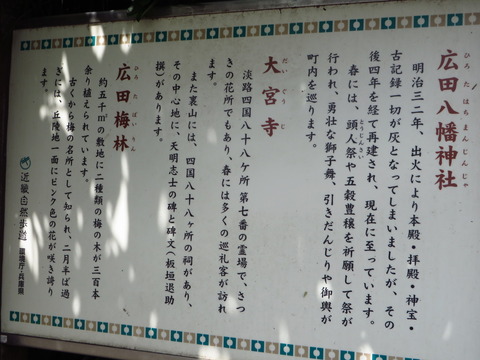 広田八幡神社
ひろたはちまんじんじゃ
明治三二年、出火により本殿・拝殿・神宝・
古記録一切が灰となってしまいましたが、その
後四年を経て再建され、現在に至っています。
春には、頭人祭や五穀豊穣を祈願して祭が
とうにんさい
行われ、勇壮な獅子舞、引きだんじりや御輿が
町内を巡ります。
大宮寺
だいぐうじ
淡路四国八十八ケ所第七番の霊場で、さつ
きの花所でもあり、春には多くの巡礼客が訪れ
ます。
また裏山には、四国八十八ヶ所の祠があり、
その中心地に、天明志士の碑と碑文(板垣退助
撰)があります。
広田梅林
ひろたばいりん
約五千㎡の敷地に二種類の梅の木が三百本
余り植えられています。
古くから梅の名所として知られ、二月半ば過
ぎには、丘陵地一面にピンク色の花が咲き誇り
ます。
近畿自然歩道
環境庁・兵庫県